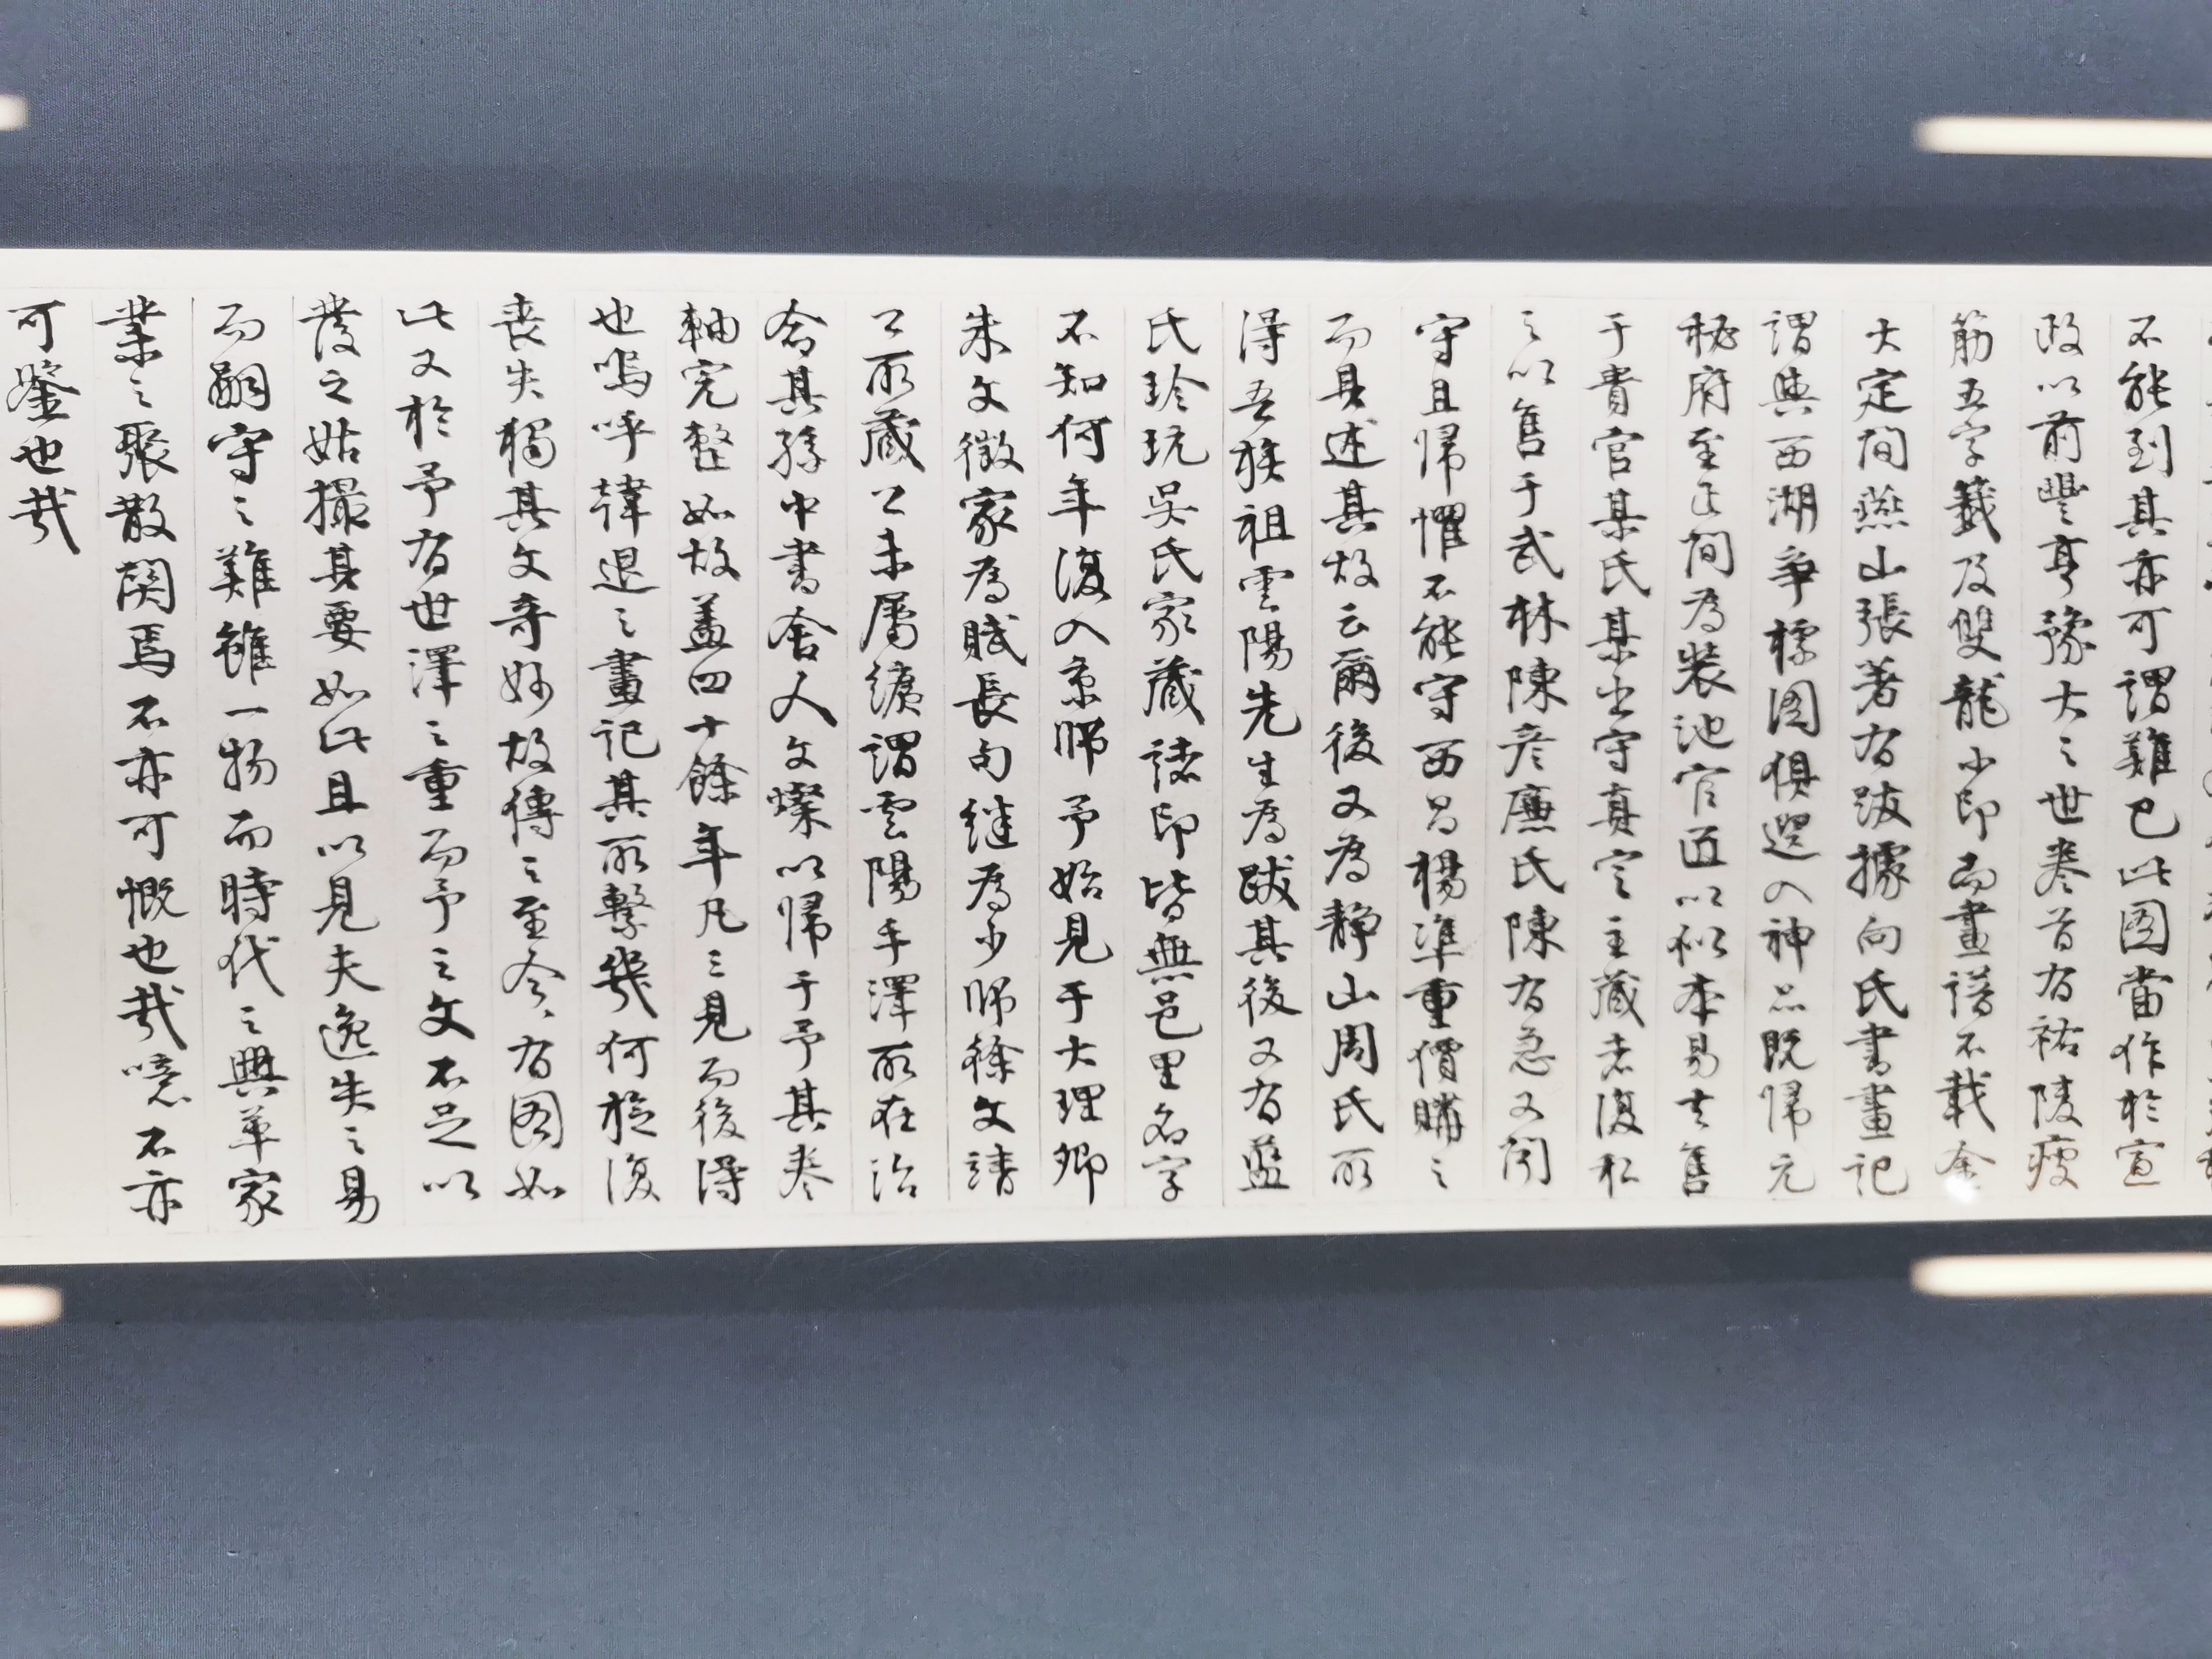 不能到其亦可謂難已此图當作於宣
政以前豐亨豫大之世卷首有祐陵瘦
筋五字籤及雙龍小印而畫譜不載金
大定間燕山張著有跋據向氏書畫記
謂與西湖爭標图俱選入神品既歸元
秘府至正間為裝池官匠以似本易去售
于貴官某氏某出守真定主藏者復私
之以售于武林陳彦廉氏陳有急又聞
守且歸懼不能守西昌楊準重價購之
而具述其故云爾後又為静山周氏所
得吾族祖雲陽先生為跋其後又有藍
氏珍玩吳氏家藏諸印皆無邑里名字
不知何年復入京师予始見于大理卿
朱文徵家為賦長句继為少师徐文靖
公所藏公未屬纊謂雲陽手澤所在治
命其孫中書舍人文燦以歸于予其卷
軸完整如故盖四十餘年凡三見而後得
也嗚呼韓退之畫記其所繫幾何於復
丧失獨其文奇妙故傳之至今今有图如
此又於予有世澤之重而予之文不足以
發之姑撮其要如此且以見夫逸失之易
而嗣守之難雖一物而時代之興革家
業之聚散関焉不亦可慨也哉噫不亦
可鑒也哉